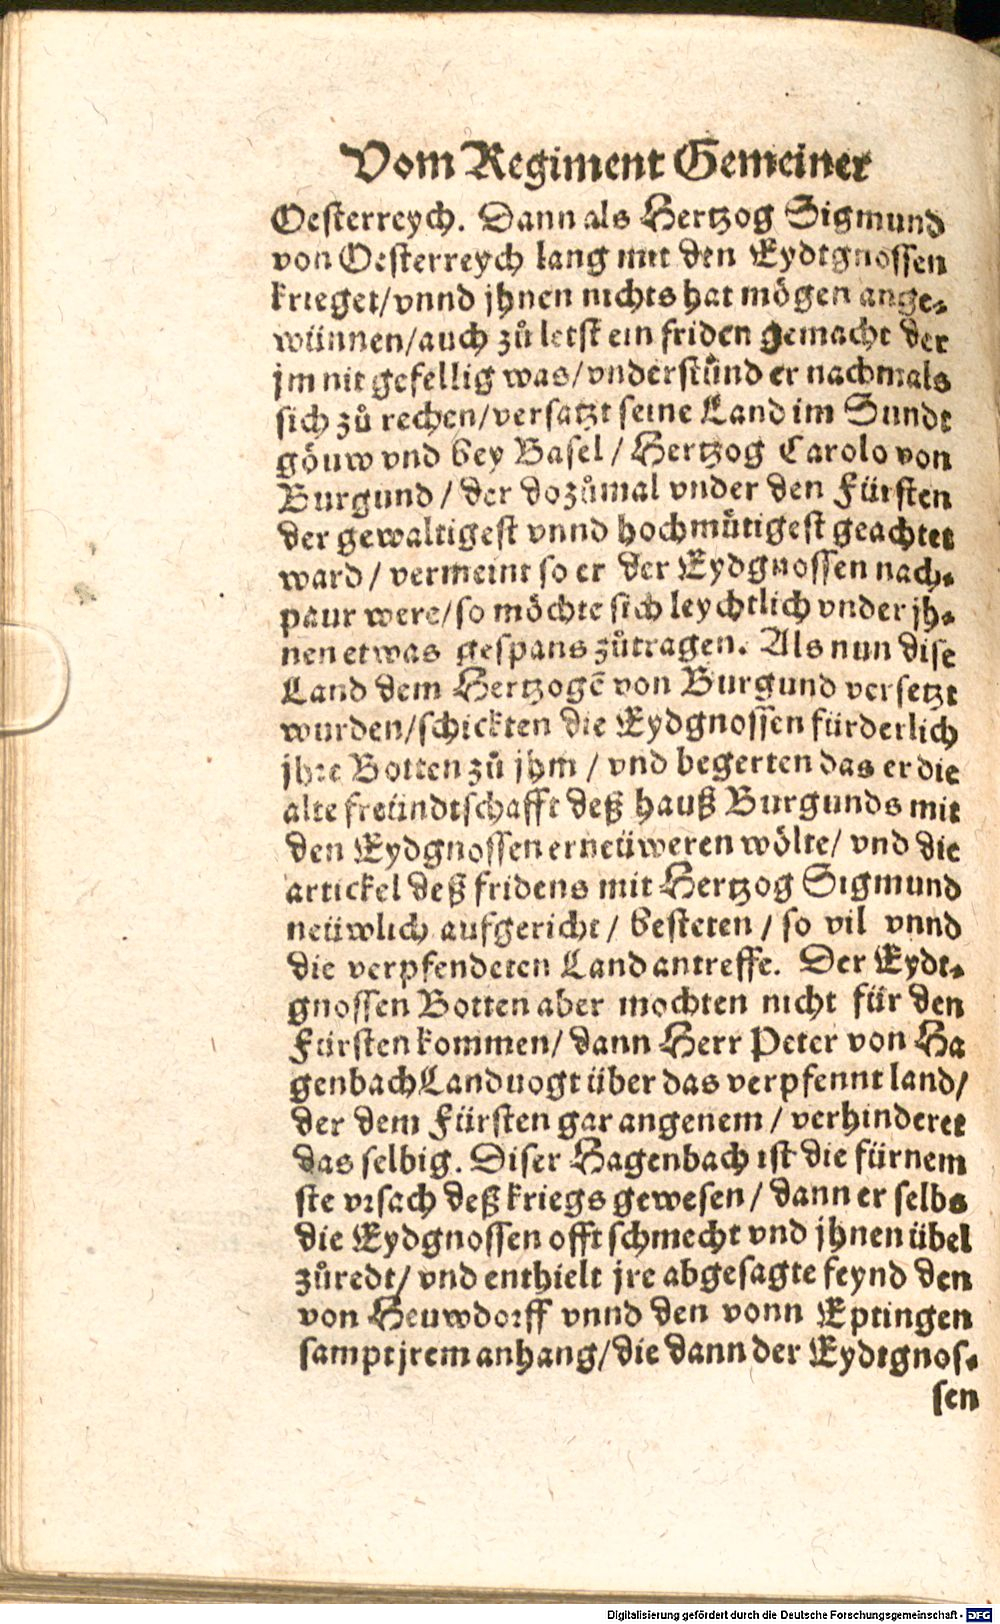 Vom Regiment Gemeiner
Oesterreych. Dann als Hertzog Sigmund
von Oesterreych lang mit den Eydtgnossen
krieget/vnnd jhnen nichts hat mögen ange⸗
wünnen/auch zů letst ein friden gemacht der
jm nit gefellig was/vnderstůnd er nachmals
sich zů rechen/versatzt seine Land im Sundt
göuw vnd bey Basel/ Hertzog Carolo von
Burgund / der dozůmal vnder den Fürsten
der gewaltigest vnnd hochmůtigest geachtet
ward / vermeint so er der Eydgnossen nach⸗
paur were/so möchte sich leychtlich vnder jh⸗
nen etwas gespans zůtragen. Als nun dise
Land dem Hertzogē von Burgund versetzt
wurden/schickten die Eydgnossen fürderlich
jhre Botten zů jhm / vnd begerten das er die
alte freündtschafft deß hauß Burgunds mit
den Eydgnossen erneüweren wölte/ vnd die
artickel deß fridens mit Hertzog Sigmund
neüwlich aufgericht / besteten / so vil vnnd
die verpfendeten Land antreffe. Der Eydt⸗
gnossen Botten aber mochten nicht für den
Fürsten kommen/ dann Herr Peter von Ha
genbach Landuogt über das verpfennt land/
der dem Fürsten gar angenem / verhinderet
das selbig. Diser Hagenbach ist die fürnem
ste vrsach deß kriegs gewesen / dann er selbs
die Eydgnossen offt schmecht vnd jhnen übel
zůredt/ vnd enthielt jre abgesagte feynd den
von Heuwdorff vnnd den vonn Eptingen
sampt jrem anhang/die dann der Eydtgnos⸗
sen
Digitalisierung gefördert durch die Deutsche Forschungsgemeinschaft - DFG